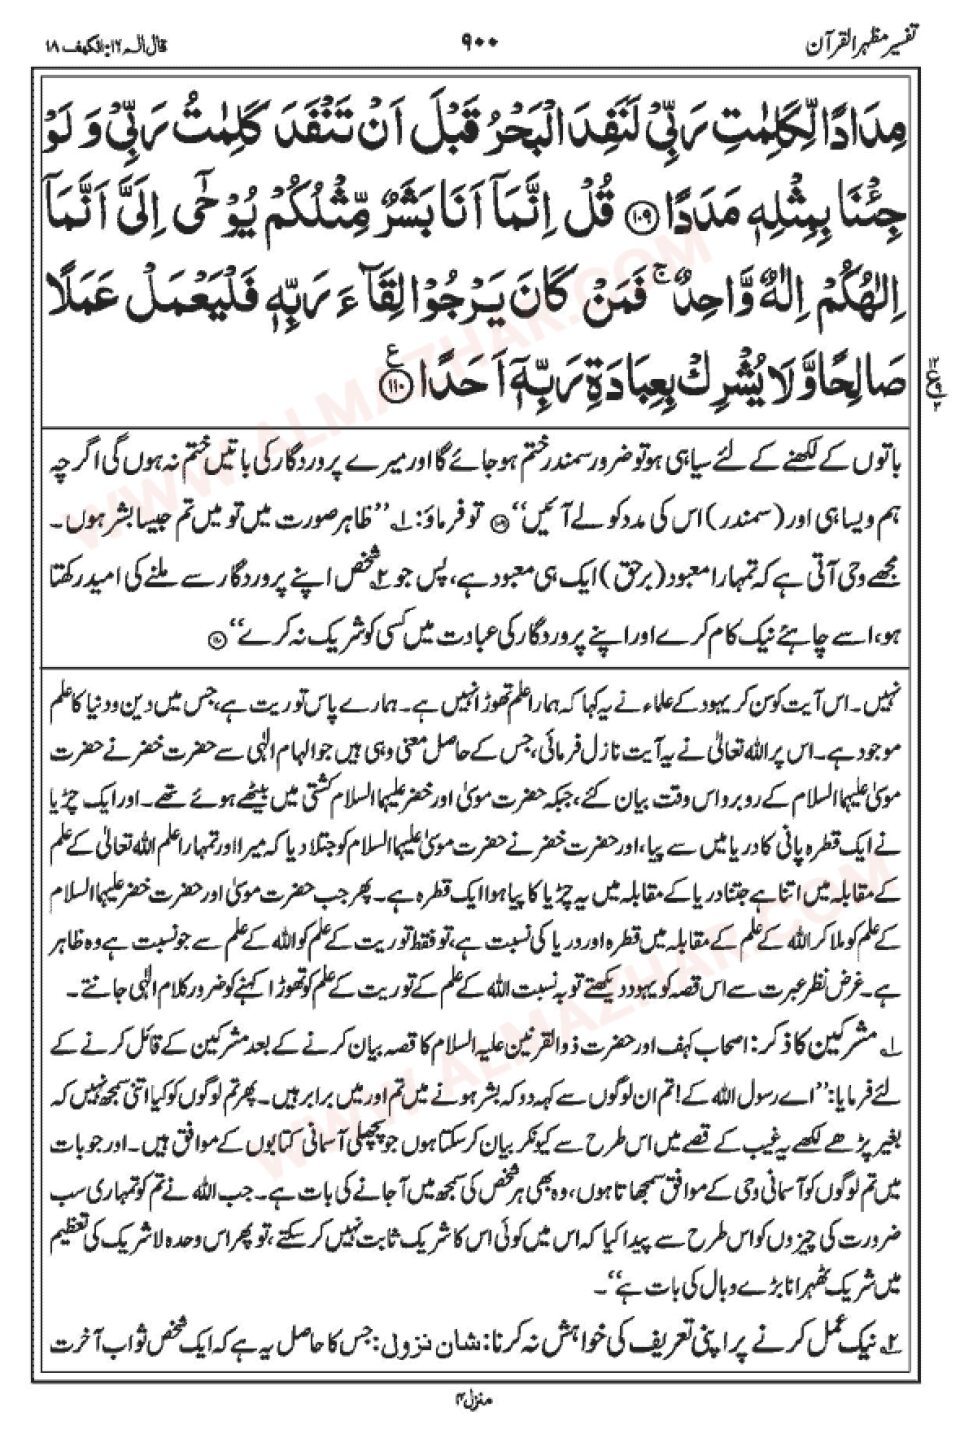 تفسیر مظہر القرآن
۹۰۰
قال الم ۱۶: الکہف ۱۸
مِدَادًا لِّكَلِمٰتِ رَبِّیْ لَنَفِدَ الْبَحْرُ قَبْلَ اَنْ تَنْفَدَ كَلِمٰتُ رَبِّیْ وَ لَوْ
جِئْنَا بِمِثْلِهٖ مَدَدًا ۝۱۰۹ قُلْ اِنَّمَاۤ اَنَا بَشَرٌ مِّثْلُكُمْ یُوْحٰۤی اِلَیَّ اَنَّمَاۤ
اِلٰهُكُمْ اِلٰهٌ وَّاحِدٌ ۚ فَمَنْ كَانَ یَرْجُوْا لِقَآءَ رَبِّهٖ فَلْیَعْمَلْ عَمَلًا
صَالِحًا وَّ لَا یُشْرِكْ بِعِبَادَةِ رَبِّهٖۤ اَحَدًا ۝۱۱۰ ع
باتوں کے لکھنے کے لئے سیاہی ہو تو ضرور سمندر ختم ہو جائے گا اور میرے پروردگار کی باتیں ختم نہ ہوں گی اگرچہ
ہم ویسا ہی اور (سمندر) اس کی مدد کو لے آئیں‘‘ ۝۱۰۹ تو فرماؤ: ۱؎ ’’ظاہر صورت میں تو میں تم جیسا بشر ہوں۔
مجھے وحی آتی ہے کہ تمہارا معبود (برحق) ایک ہی معبود ہے، پس جو ۲؎ شخص اپنے پروردگار سے ملنے کی امید رکھتا
ہو، اسے چاہئے نیک کام کرے اور اپنے پروردگار کی عبادت میں کسی کو شریک نہ کرے‘‘ ۝۱۱۰
نہیں۔ اس آیت کو سن کر یہود کے علماء نے یہ کہا کہ ہمارا علم تھوڑا نہیں ہے۔ ہمارے پاس توریت ہے، جس میں دین و دنیا کا علم
موجود ہے۔ اس پر اللہ تعالیٰ نے یہ آیت نازل فرمائی، جس کے حاصل معنی وہی ہیں جو الہام الٰہی سے حضرت خضر نے حضرت
موسیٰ علیہما السلام کے روبرو اس وقت بیان کئے، جبکہ حضرت موسیٰ اور خضر علیہما السلام کشتی میں بیٹھے ہوئے تھے۔ اور ایک چڑیا
نے ایک قطرہ پانی کا دریا میں سے پیا، اور حضرت خضر نے حضرت موسیٰ علیہما السلام کو جتلا دیا کہ میرا اور تمہارا علم اللہ تعالیٰ کے علم
کے مقابلہ میں اتنا ہے جتنا دریا کے مقابلہ میں یہ چڑیا کا پیا ہوا ایک قطرہ ہے۔ پھر جب حضرت موسیٰ اور حضرت خضر علیہما السلام
کے علم کو ملا کر اللہ کے علم کے مقابلہ میں قطرہ اور دریا کی نسبت ہے، تو فقط توریت کے علم کو اللہ کے علم سے جو نسبت ہے وہ ظاہر
ہے۔ غرض نظر عبرت سے اس قصہ کو یہود دیکھتے تو بہ نسبت اللہ کے علم کے توریت کے علم کو تھوڑا کہنے کو ضرور کلام الٰہی جانتے۔
۱؎ مشرکین کا ذکر: اصحاب کہف اور حضرت ذوالقرنین علیہ السلام کا قصہ بیان کرنے کے بعد مشرکین کے قائل کرنے کے
لئے فرمایا: ’’اے رسول اللہ کے! تم ان لوگوں سے کہہ دو کہ بشر ہونے میں تم اور میں برابر ہیں۔ پھر تم لوگوں کو کیا اتنی سمجھ نہیں کہ
بغیر پڑھے لکھے یہ غیب کے قصے میں اس طرح سے کیونکر بیان کرسکتا ہوں جو پچھلی آسمانی کتابوں کے موافق ہیں۔ اور جو بات
میں تم لوگوں کو آسمانی وحی کے موافق سمجھاتا ہوں، وہ بھی ہر شخص کی سمجھ میں آجانے کی بات ہے۔ جب اللہ نے تم کو تمہاری سب
ضرورت کی چیزوں کو اس طرح سے پیدا کیا کہ اس میں کوئی اس کا شریک ثابت نہیں کرسکتے، تو پھر اس وحدہ لا شریک کی تعظیم
میں شریک ٹھہرانا بڑے وبال کی بات ہے‘‘۔
۲؎ نیک عمل کرنے پر اپنی تعریف کی خواہش نہ کرنا: شان نزول: جس کا حاصل یہ ہے کہ ایک شخص ثواب آخرت
منزل ۴
WWW.ALMAZHAR.COM
WWW.ALMAZHAR.COM